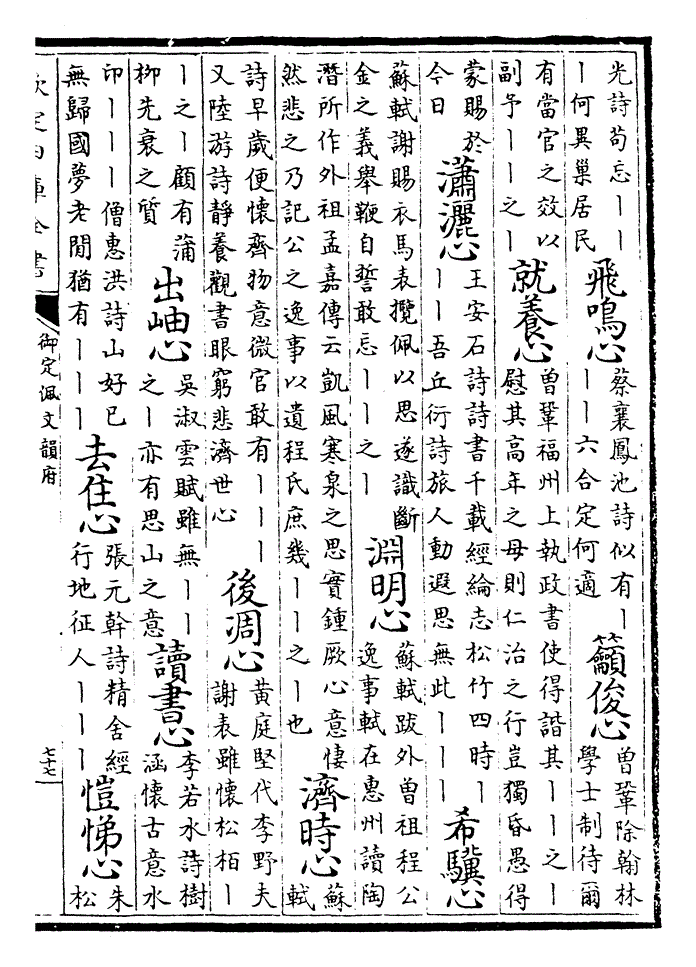 光詩苟忘丨丨
丨何異巢居民
飛鳴心
蔡襄鳳池詩似有丨
丨丨六合定何適
籲俊心
曾鞏除翰林
學士制待爾
有當官之效以
副予丨丨之丨
就養心
曾鞏福州上執政書使得諧其丨丨之丨
慰其高年之母則仁治之行豈獨昏愚得
蒙賜於
今日
瀟灑心
王安石詩詩書千載經綸志松竹四時丨
丨丨吾丘衍詩旅人動遐思無此丨丨丨
希驥心
蘇軾謝賜衣馬表攬佩以思遂識斷
金之義舉鞭自誓敢忘丨丨之丨
淵明心
蘇軾跋外曾祖程公
逸事軾在惠州讀陶
潛所作外祖孟嘉傳云凱風寒泉之思實鍾厥心意悽
然悲之乃記公之逸事以遺程氏庶幾丨丨之丨也
濟時心
蘇
軾
詩早歲便懷齊物意微官敢有丨丨丨
又陸游詩靜養觀書眼窮悲濟世心
後凋心
黃庭堅代李野夫
謝表雖懷松柏丨
丨之丨顧有蒲
柳先衰之質
出岫心
吳淑雲賦雖無丨丨
之丨亦有思山之意
讀書心
李若水詩樹
涵懷古意水
印丨丨丨僧惠洪詩山好已
無歸國夢老閒猶有丨丨丨
去住心
張元幹詩精舍經
行地征人丨丨丨
愷悌心
朱
松
欽定四庫全書
御定佩文韻府
七十七